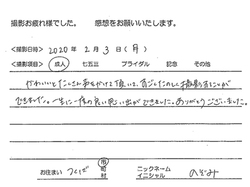 撮影お疲れ様でした。 感想をお願いいたします。
<撮影日時> 2020年 2月 3日(月)
<撮影項目> 成人 七五三 ブライダル 記念 その他
かわいいとたくさん声をかけて頂いて、すごくたのしく撮影することが
できました。一生に一度の良い思い出ができました。ありがとうございました。
お住まい つくば 市 町 村 ニックネーム イニシャル のぞみ